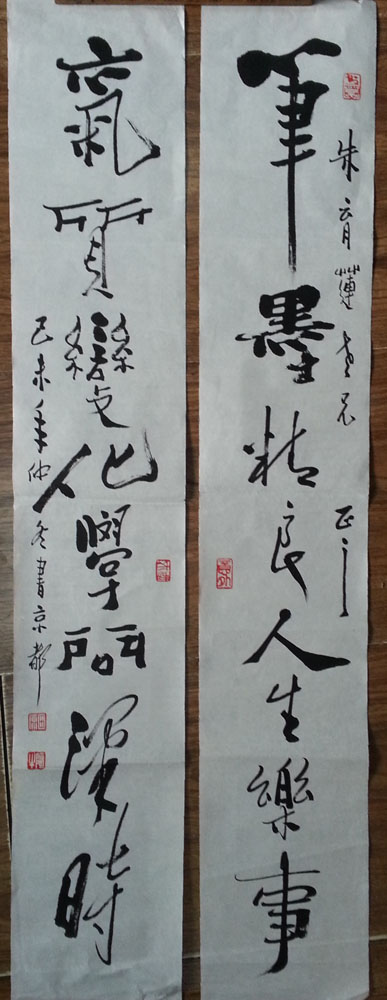 朱育莲老兄
正之
筆墨精良人生樂事
氣質變化學問深時
己未年仲冬書京都